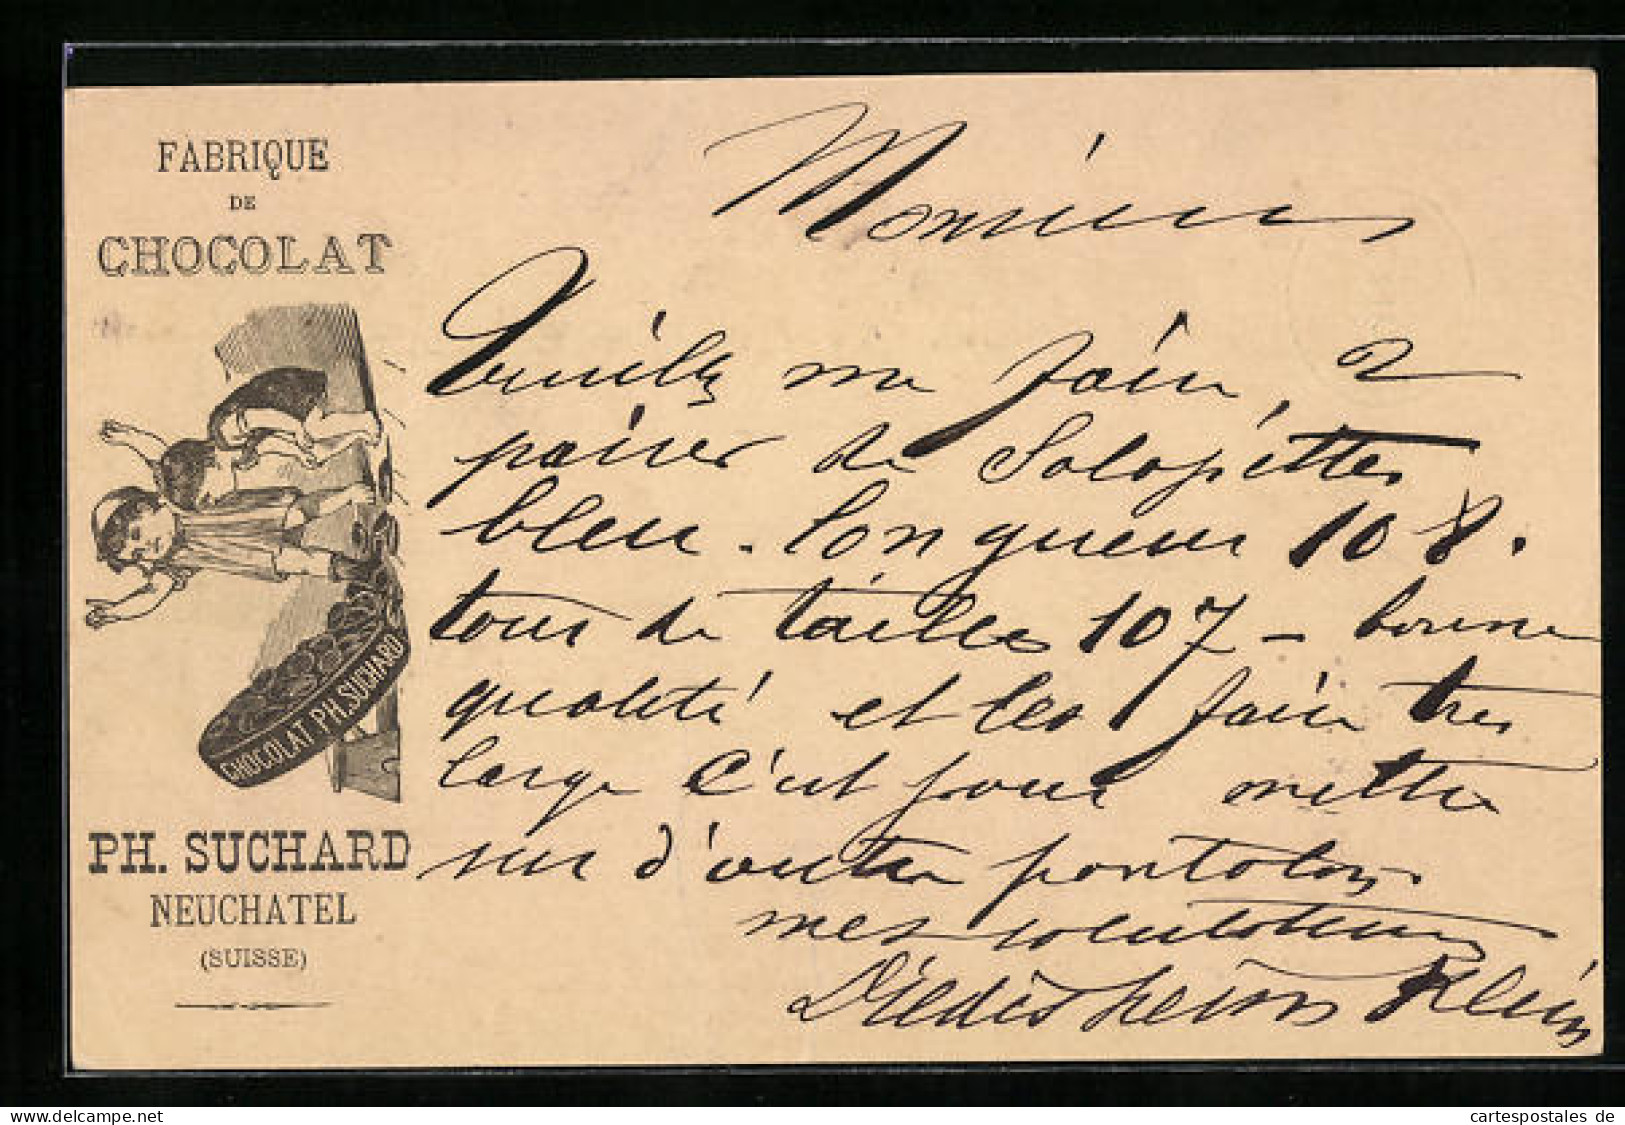 FABRIQUE
DE
CHOCOLAT
CHOCOLAT PH. SUCHARD
PH. SUCHARD
NEUCHATEL
(SUISSE)
Monsieur
Veuillez me faire 2
paires de Salopettes
bleu. longueur 108.
tour de tailles 107 – bonne
qualité et les faire tres
large c'est pour mettre
sur d'autre pantalon.
mes salutations
Diedisheim Klein
cartespostales de